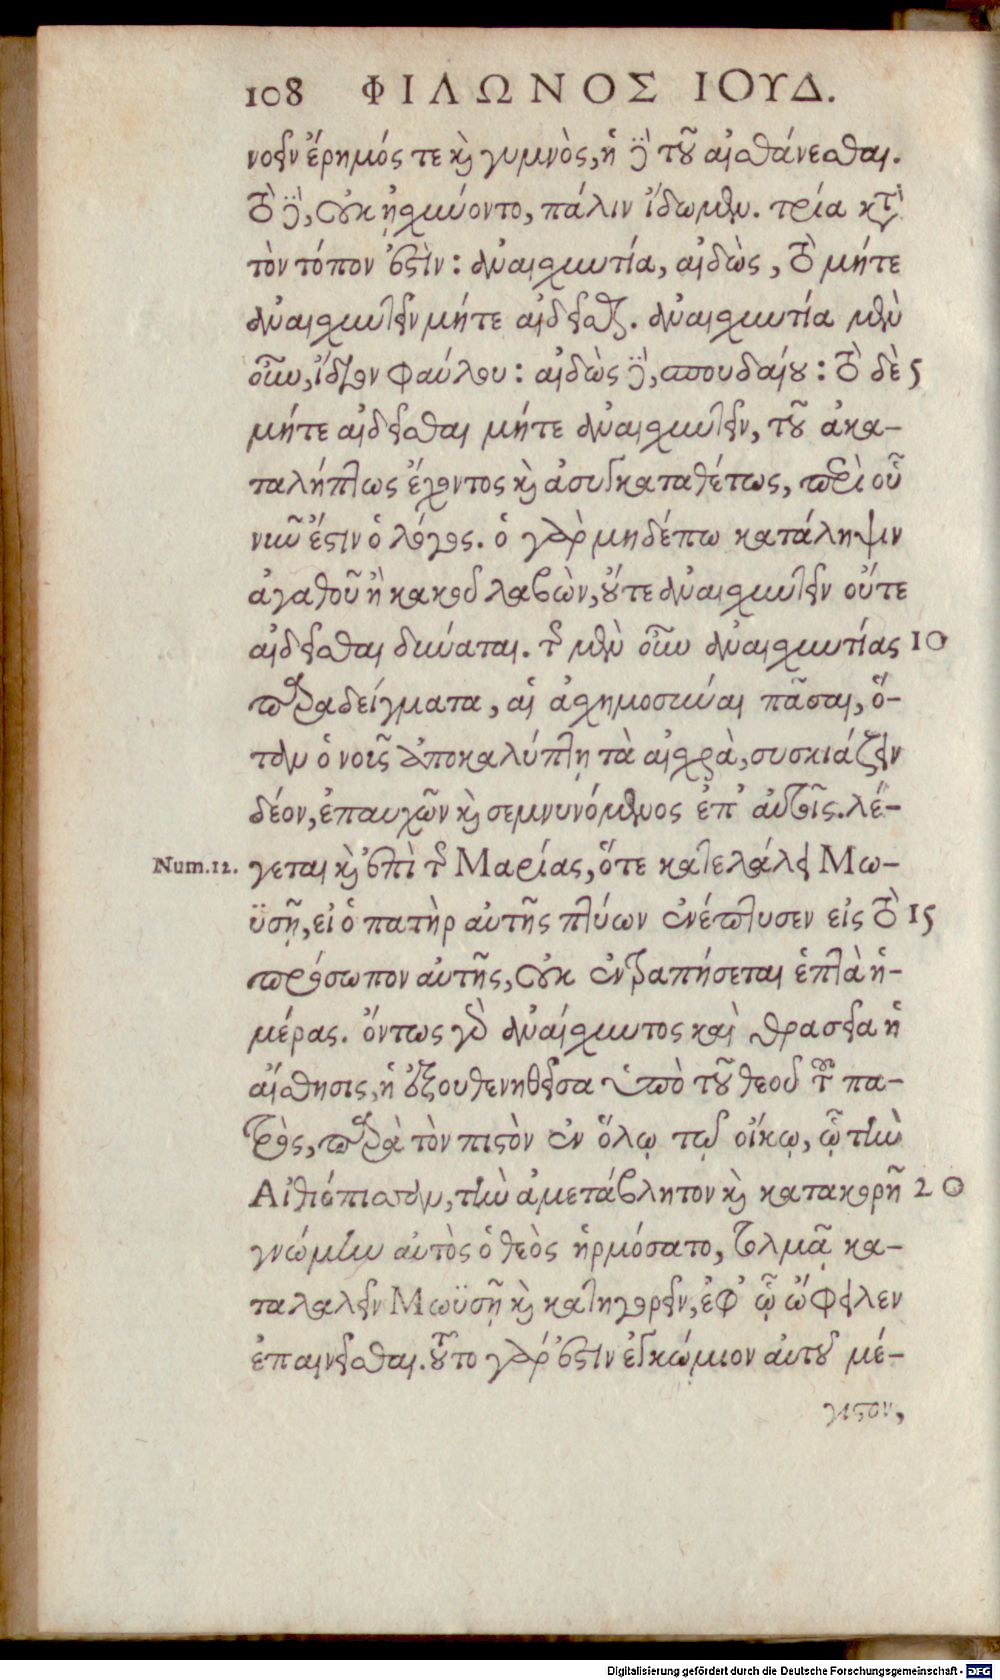 108 ΦΙΛΩΝΟΣ ΙΟΥΔ.
νοεῖν ἔρημός τε καὶ γυμνὸς, ἡ δὲ τοῦ αἰσθάνεσθαι.
τὸ δὲ, οὐκ ᾐσχύοντο, πάλιν ἴδωμεν. τρία κατὰ
τὸν τόπον ἐστὶν: ἀναισχυντία, αἰδὼς, τὸ μήτε
ἀναισχυντεῖν μήτε αἰδεῖσθαι. ἀναισχυντία μὲν
οὖν, ἴδιον φαύλου: αἰδὼς δὲ, σπουδαίου: τὸ δὲ 5
μήτε αἰδεῖσθαι μήτε ἀναισχυντεῖν, τοῦ ἀκα-
ταλήπτως ἔχοντος καὶ ἀσυγκαταθέτως, περὶ οὗ
νῦν ἐστιν ὁ λόγος. ὁ γὰρ μηδέπω κατάληψιν
ἀγαθοῦ ἢ κακοῦ λαβὼν, οὔτε ἀναισχυντεῖν οὔτε
αἰδεῖσθαι δύναται. τῆς μὲν οὖν ἀναισχυντίας 10
παραδείγματα, αἱ ἀσχημοσύναι πᾶσαι, ὅ-
ταν ὁ νοῦς ἀποκαλύπτῃ τὰ αἰσχρὰ, συσκιάζειν
δέον, ἐπαυχῶν καὶ σεμνυνόμενος ἐπ' αὐτοῖς. λέ-
Num.12. γεται καὶ ἐπὶ τῆς Μαρίας, ὅτε κατελάλει Μω-
ϋσῇ, εἰ ὁ πατὴρ αὐτῆς πτύων ἐνέπτυσεν εἰς τὸ 15
πρόσωπον αὐτῆς, οὐκ ἐντραπήσεται ἑπτὰ ἡ-
μέρας. ὄντως γὰρ ἀναίσχυντος καὶ θρασεῖα ἡ
αἴσθησις, ἡ ἐξουθενηθεῖσα ὑπὸ τοῦ θεοῦ τοῦ πα-
τρὸς, παρὰ τὸν πιστὸν ἐν ὅλῳ τῷ οἴκῳ, ᾧ τὴν
Αἰθιόπισσαν, τὴν ἀμετάβλητον καὶ κατακορῆ 20
γνώμην αὐτὸς ὁ θεὸς ἡρμόσατο, τολμᾷ κα-
ταλαλεῖν Μωϋσῇ καὶ κατηγορεῖν, ἐφ' ᾧ ὤφειλεν
ἐπαινεῖσθαι. τοῦτο γάρ ἐστιν ἐγκώμιον αὐτοῦ μέ-
γιστον,
Digitalisierung gefördert durch die Deutsche Forschungsgemeinschaft - DFG